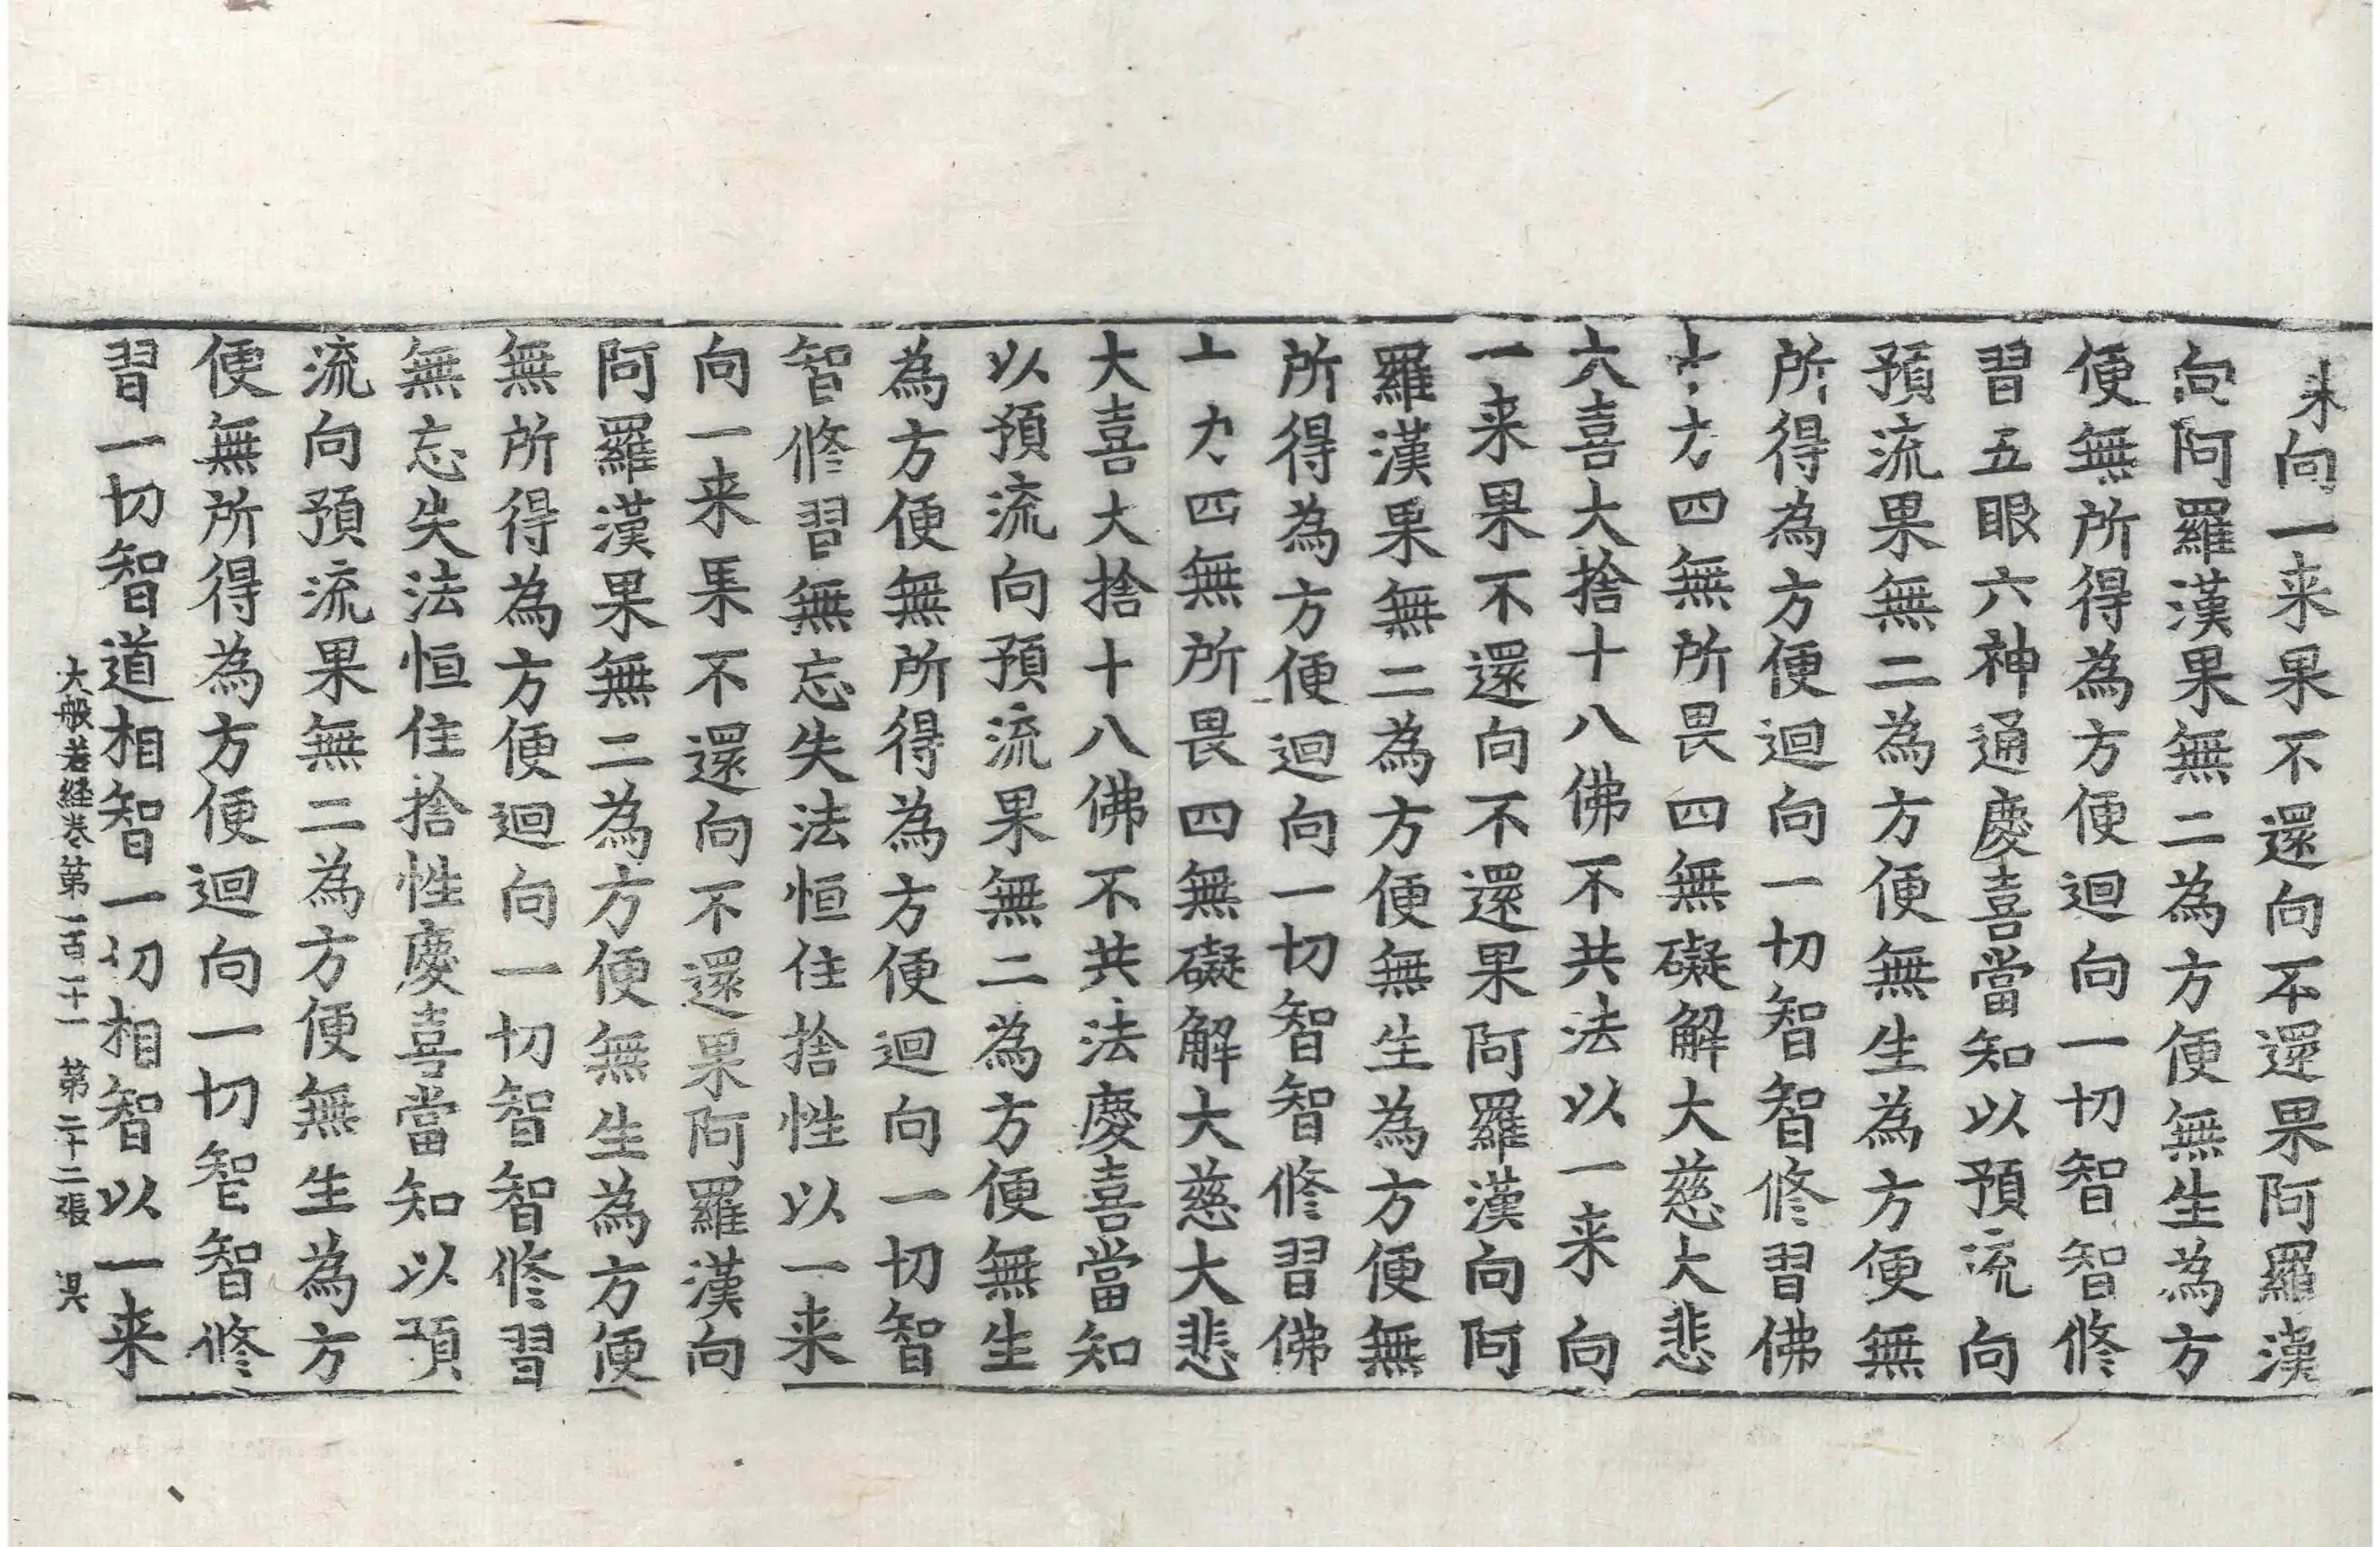 来向一来果不還向不還果阿羅漢
向阿羅漢果無二為方便無生為方
便無所得為方便迴向一切智智修
習五眼六神通慶喜當知以預流向
預流果無二為方便無生為方便無
所得為方便迴向一切智智修習佛
十力四無所畏四無礙解大慈大悲
大喜大捨十八佛不共法以一来向
一来果不還向不還果阿羅漢向阿
羅漢果無二為方便無生為方便無
所得為方便迴向一切智智修習佛
十力四無所畏四無礙解大慈大悲
大喜大捨十八佛不共法慶喜當知
以預流向預流果無二為方便無生
為方便無所得為方便迴向一切智
智修習無忘失法恒住捨性以一来
向一来果不還向不還果阿羅漢向
阿羅漢果無二為方便無生為方便
無所得為方便迴向一切智智修習
無忘失法恒住捨性慶喜當知以預
流向預流果無二為方便無生為方
便無所得為方便迴向一切智智修
習一切智道相智一切相智以一来
大般若経巻第一百二十一 第二十二張 昃